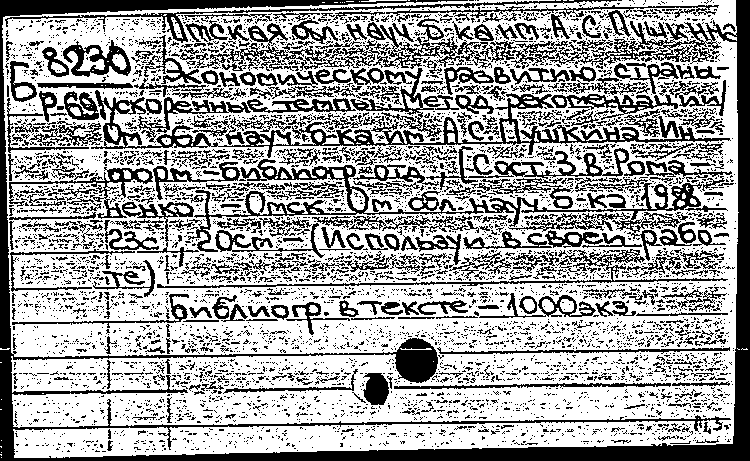 Омская обл. науч. б-ка им. А.С. Пушкина
Б 8230
Р-69
Экономическому развитию страны-
ускоренные темпы. Метод. рекомендации/
Ом. обл. науч. б-ка им. А.С. Пушкина. Ин-
форм.-библиогр. отд.; [Сост. З.В. Рома-
ненко]. - Омск: Ом. обл. науч. б-ка, 1988.-
23с.; 20см.- (Используй в своей рабо-
те).
Библиогр. в тексте. - 1000экз.